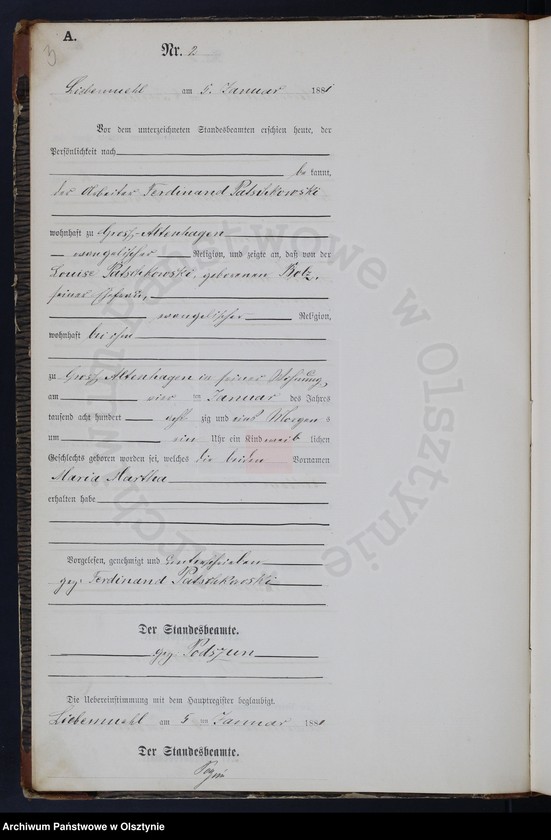 A.
3
Nr. 2
Liebemuehl am 5. Januar 1881
Vor dem unterzeichneten Standesbeamten erschien heute, der
Persönlichkeit nach
be kannt,
der Arbeiter Ferdinand Patschkowski
wohnhaft zu Gross-Altenhagen
evangelischer Religion, und zeigte an, daß von der
Louise Patschkowski, geborenen
seiner Ehefrau,
evangelischer Religion,
wohnhaft bei ihm
zu Gross Altenhagen in seiner Wohnung,
am vier ten Januar des Jahres
tausend acht hundert acht zig und eins Morgens
um ein Uhr ein Kind weib lichen
Geschlechts geboren worden sei, welches die beiden Vornamen
Maria Martha
erhalten habe
Vorgelesen, genehmigt und unterschrieben
gez. Ferdinand Patschkowski
Der Standesbeamte.
gez. Podszun
Die Uebereinstimmung mit dem Hauptregister beglaubigt.
Liebemuehl am 5 ten Januar 1881
Der Standesbeamte.
Archiwum Państwowe w Olsztynie
Archiwum Państwowe w Olsztynie